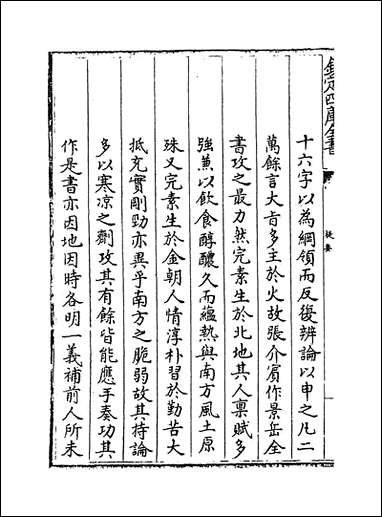 欽定四庫全書
提要
十六字以為綱領而反復辨論以申之凡二
萬餘言大㫖多主於火故張介賓作景岳全
書攻之最力然完素生於北地其人稟賦多
強兼以飲食醇醲久而藴熱與南方風土原
殊又完素生於金朝人情淳朴習於勤苦大
抵充實剛勁亦異乎南方之脆弱故其持論
多以寒凉之劑攻其有餘皆能應手奏功其
作是書亦因地因時各明一義補前人所未